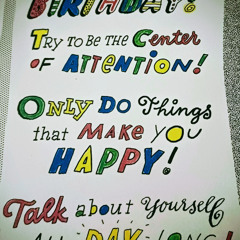 BIRTHDAY!
TRY TO BE THE CENTER
OF ATTENTION!
ONLY DO Things
that MAKE YOU
HAPPY!
Talk about Yourself
ALL DAY LONG!